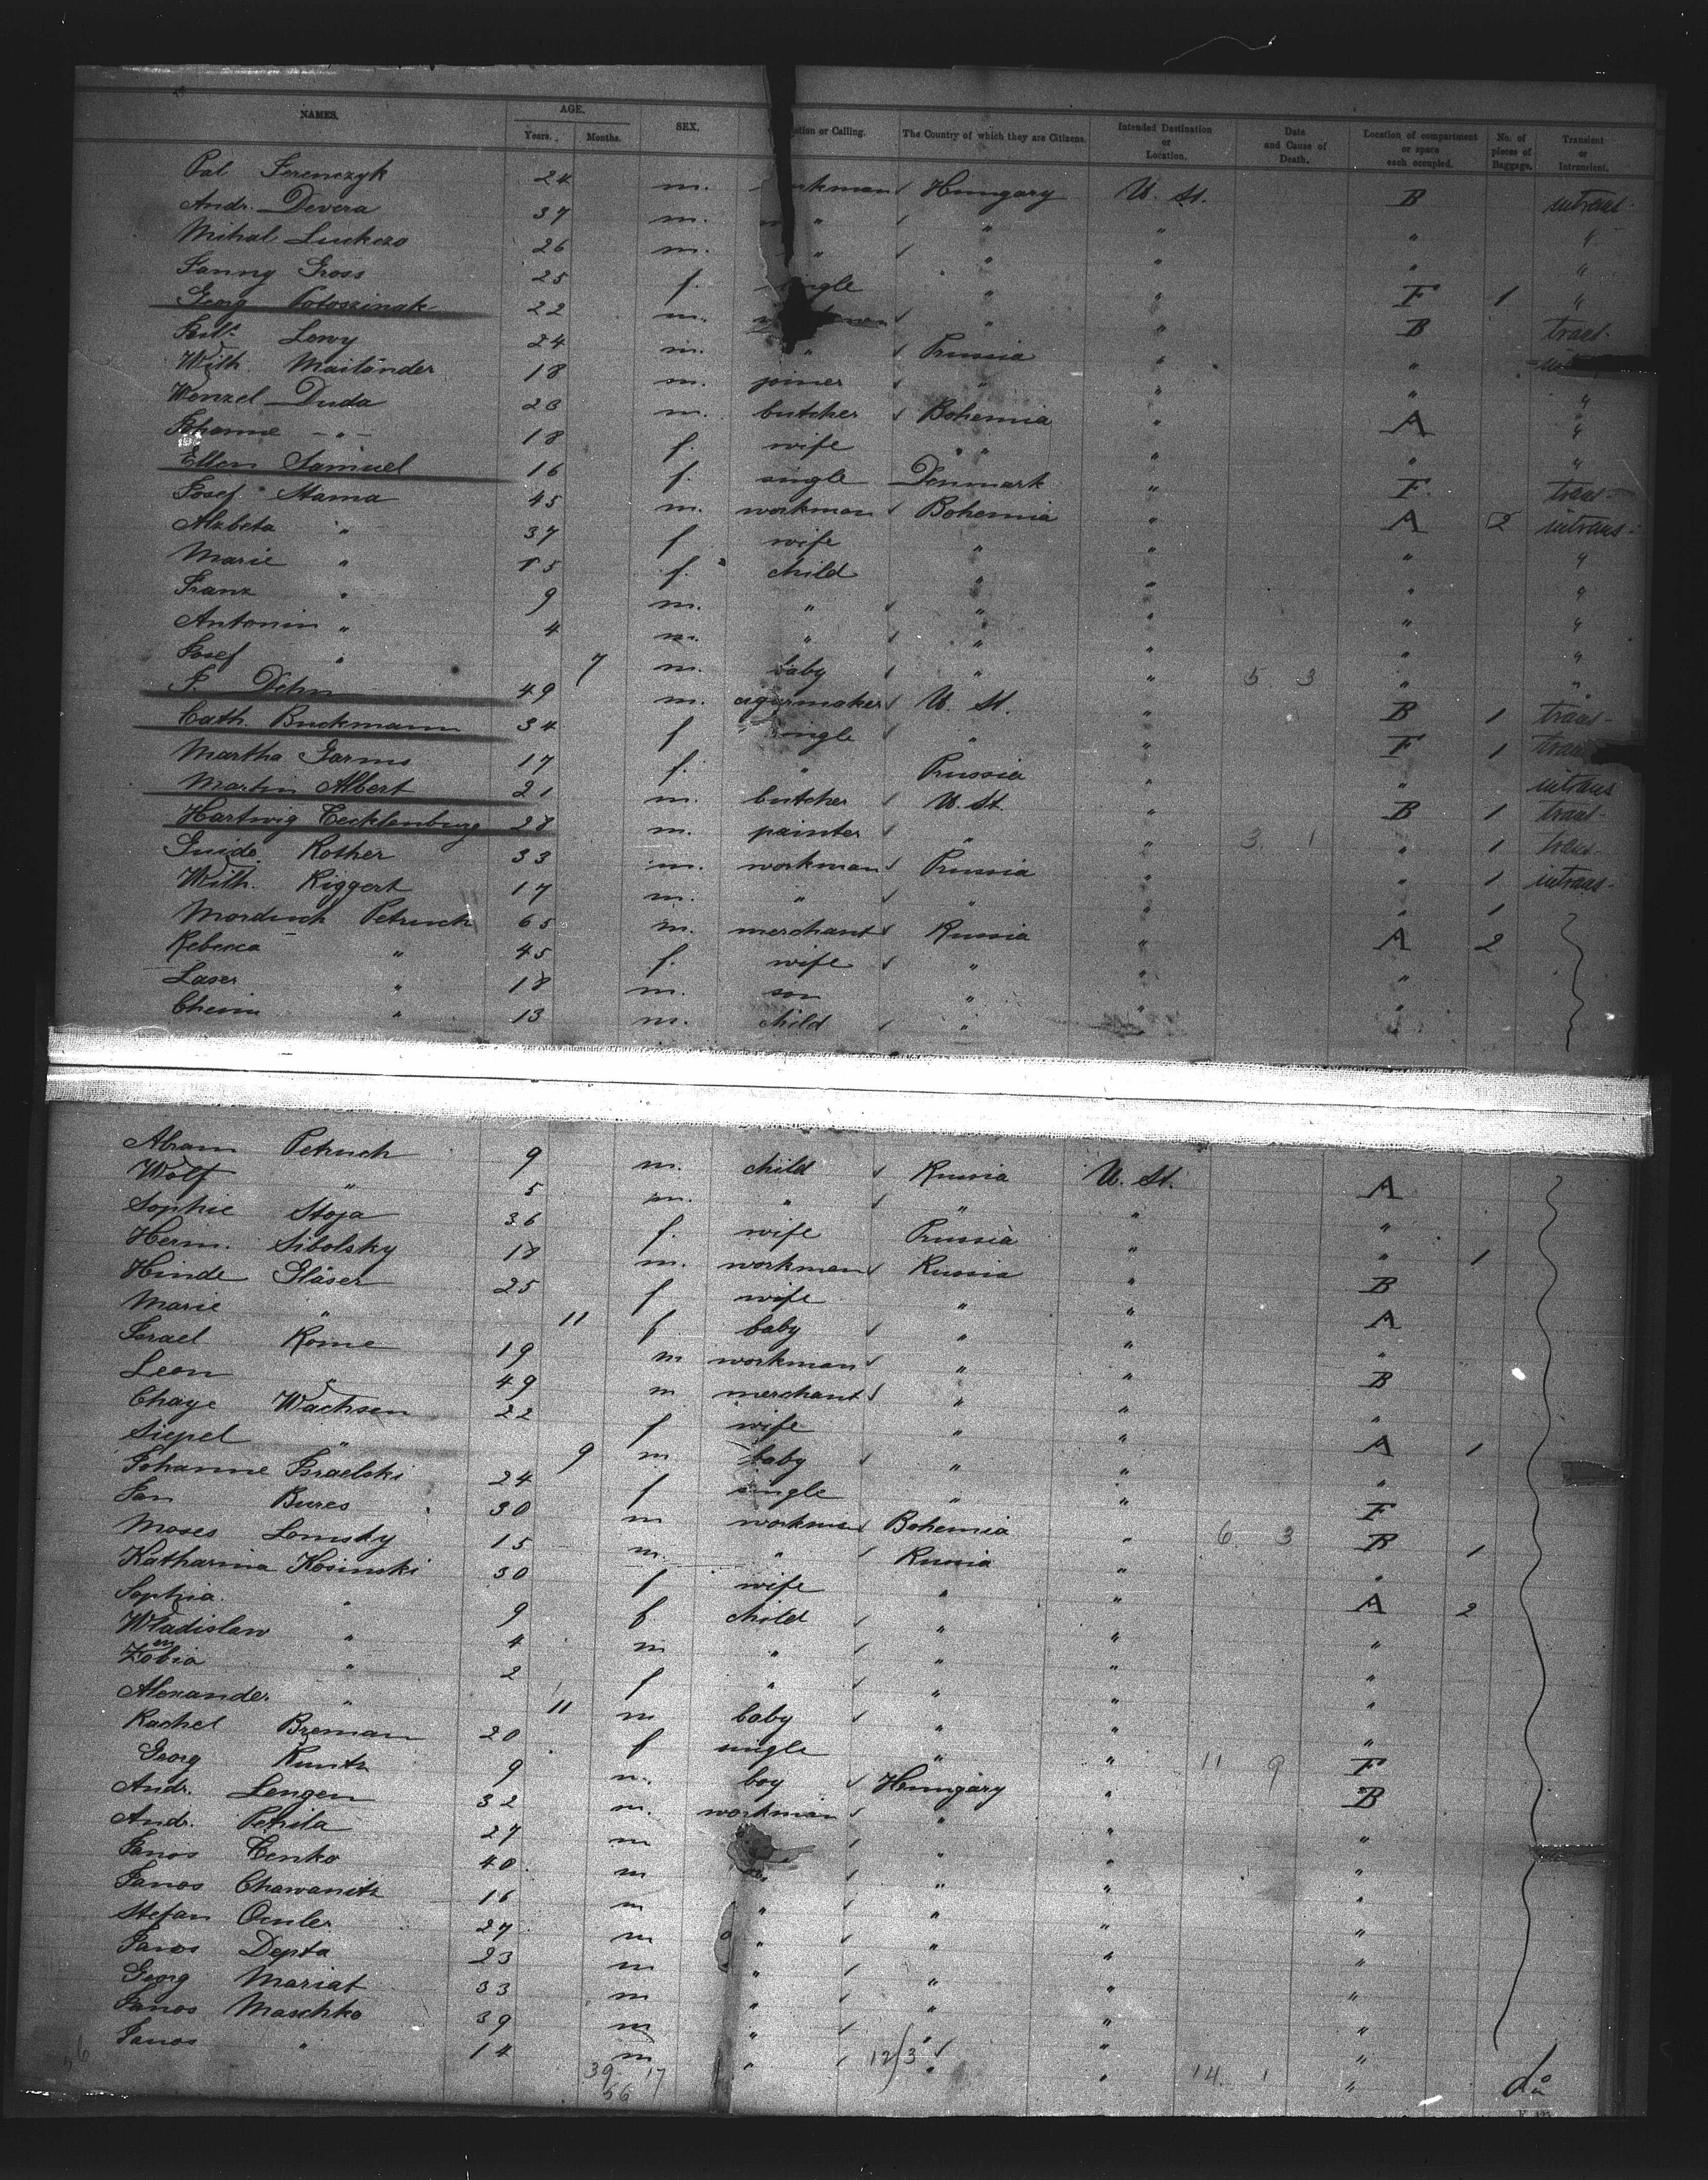 NAMES. AGE. Years. Months. SEX. ation or Calling. The Country of which they are Citizens. Intended Destination or Location. Date and Cause of Death. Location of compartment or space each occupied. No. of pieces of Baggage. Transient or Intransient.
Pal Ferenczyk 24 m. rkman Hungary U. St. B intrans
Andr. Devera 37 m. " " " " "
Mihal Luckczo 26 m. " " " " "
Fanny Gross 25 f. single " " F 1 "
Georg 22 m. " " B trans-
Lewy 24 m. " Prussia " "
Wilh. Mailänder 18 m. joiner " " " "
Wenzel Duda 26 m. butcher Bohemia " A "
Johanne -"- 18 f. wife " " " "
Ellen Samuel 16 f. single Denmark " F. trans-
Josef Stama 45 m. workman Bohemia " A 2 intrans-
Alzbeta " 37 f wife " " " "
Marie " 15 f. child " " " "
Franz " 9 m. " " " " "
Antonin " 4 m. " " " " "
Josef " 7 m. baby " " 5 3 " "
J. Dehn 49 m. cigarmaker U. St. " B 1 trans-
Cath. Buckmann 34 f single " " F 1 trans
Martha Garms 17 f. " Prussia " " intrans
Martin Albert 21 m. butcher U. St. " B 1 trans-
Hartwig Tecklenburg 28 m. painter " " 3. 1 " 1 trans-
Guido Rother 33 m. workman Prussia " " 1 intrans-
Wilh. Riggert 17 m. " " " " 1
Morduch Petruch 65 m. merchant Russia " A 2
Rebecca " 45 f. wife " " "
Laser " 18 m. son " " "
Cheim " 13 m. child "
Abram Petruch 9 m. child Russia U. St. A
Wolf " 5 m. " " " "
Sophie Stoja 36 f. wife Prussia " " 1
Herm. Sibolsky 18 m. workman Russia " B
Hinde Gläser 25 f wife " " A
Marie " 11 f. baby " " "
Israel Rome 19 m workman " " B
Leon " 49 m merchant " " "
Chaye Wachsen 22 f wife " " A 1
Siepel " 9 m baby " " "
Johanne Israelski 24 f single " " F
Jan Bures 30 m workman Bohemia " 6 3 B 1
Moses Lomsky 15 m. " Russia " "
Katharina Kosinski 30 f wife " " A 2
Sophia " 9 f child " " "
Wladislaw " 4 m " " " "
Zobia " 2 f " " " "
Alexander " 11 m baby " " "
Rachel Breman 20 f single " " 11 9 F
Georg Kuntz 9 m. boy Hungary " B
Andr. Lengen 32 m. workman " " "
Andr. Petrila 27 m " " "
Janos Tenko 40 m " " "
Janos Chawanitz 16 m " " " "
Stefan Omler 27 m " " " "
Janos Depta 23 m " " " "
Georg Mariat 33 m " " " "
Janos Maschko 39 m " " " "
Janos " 14 m " " " 14. 1 "
39 17 12/3
56